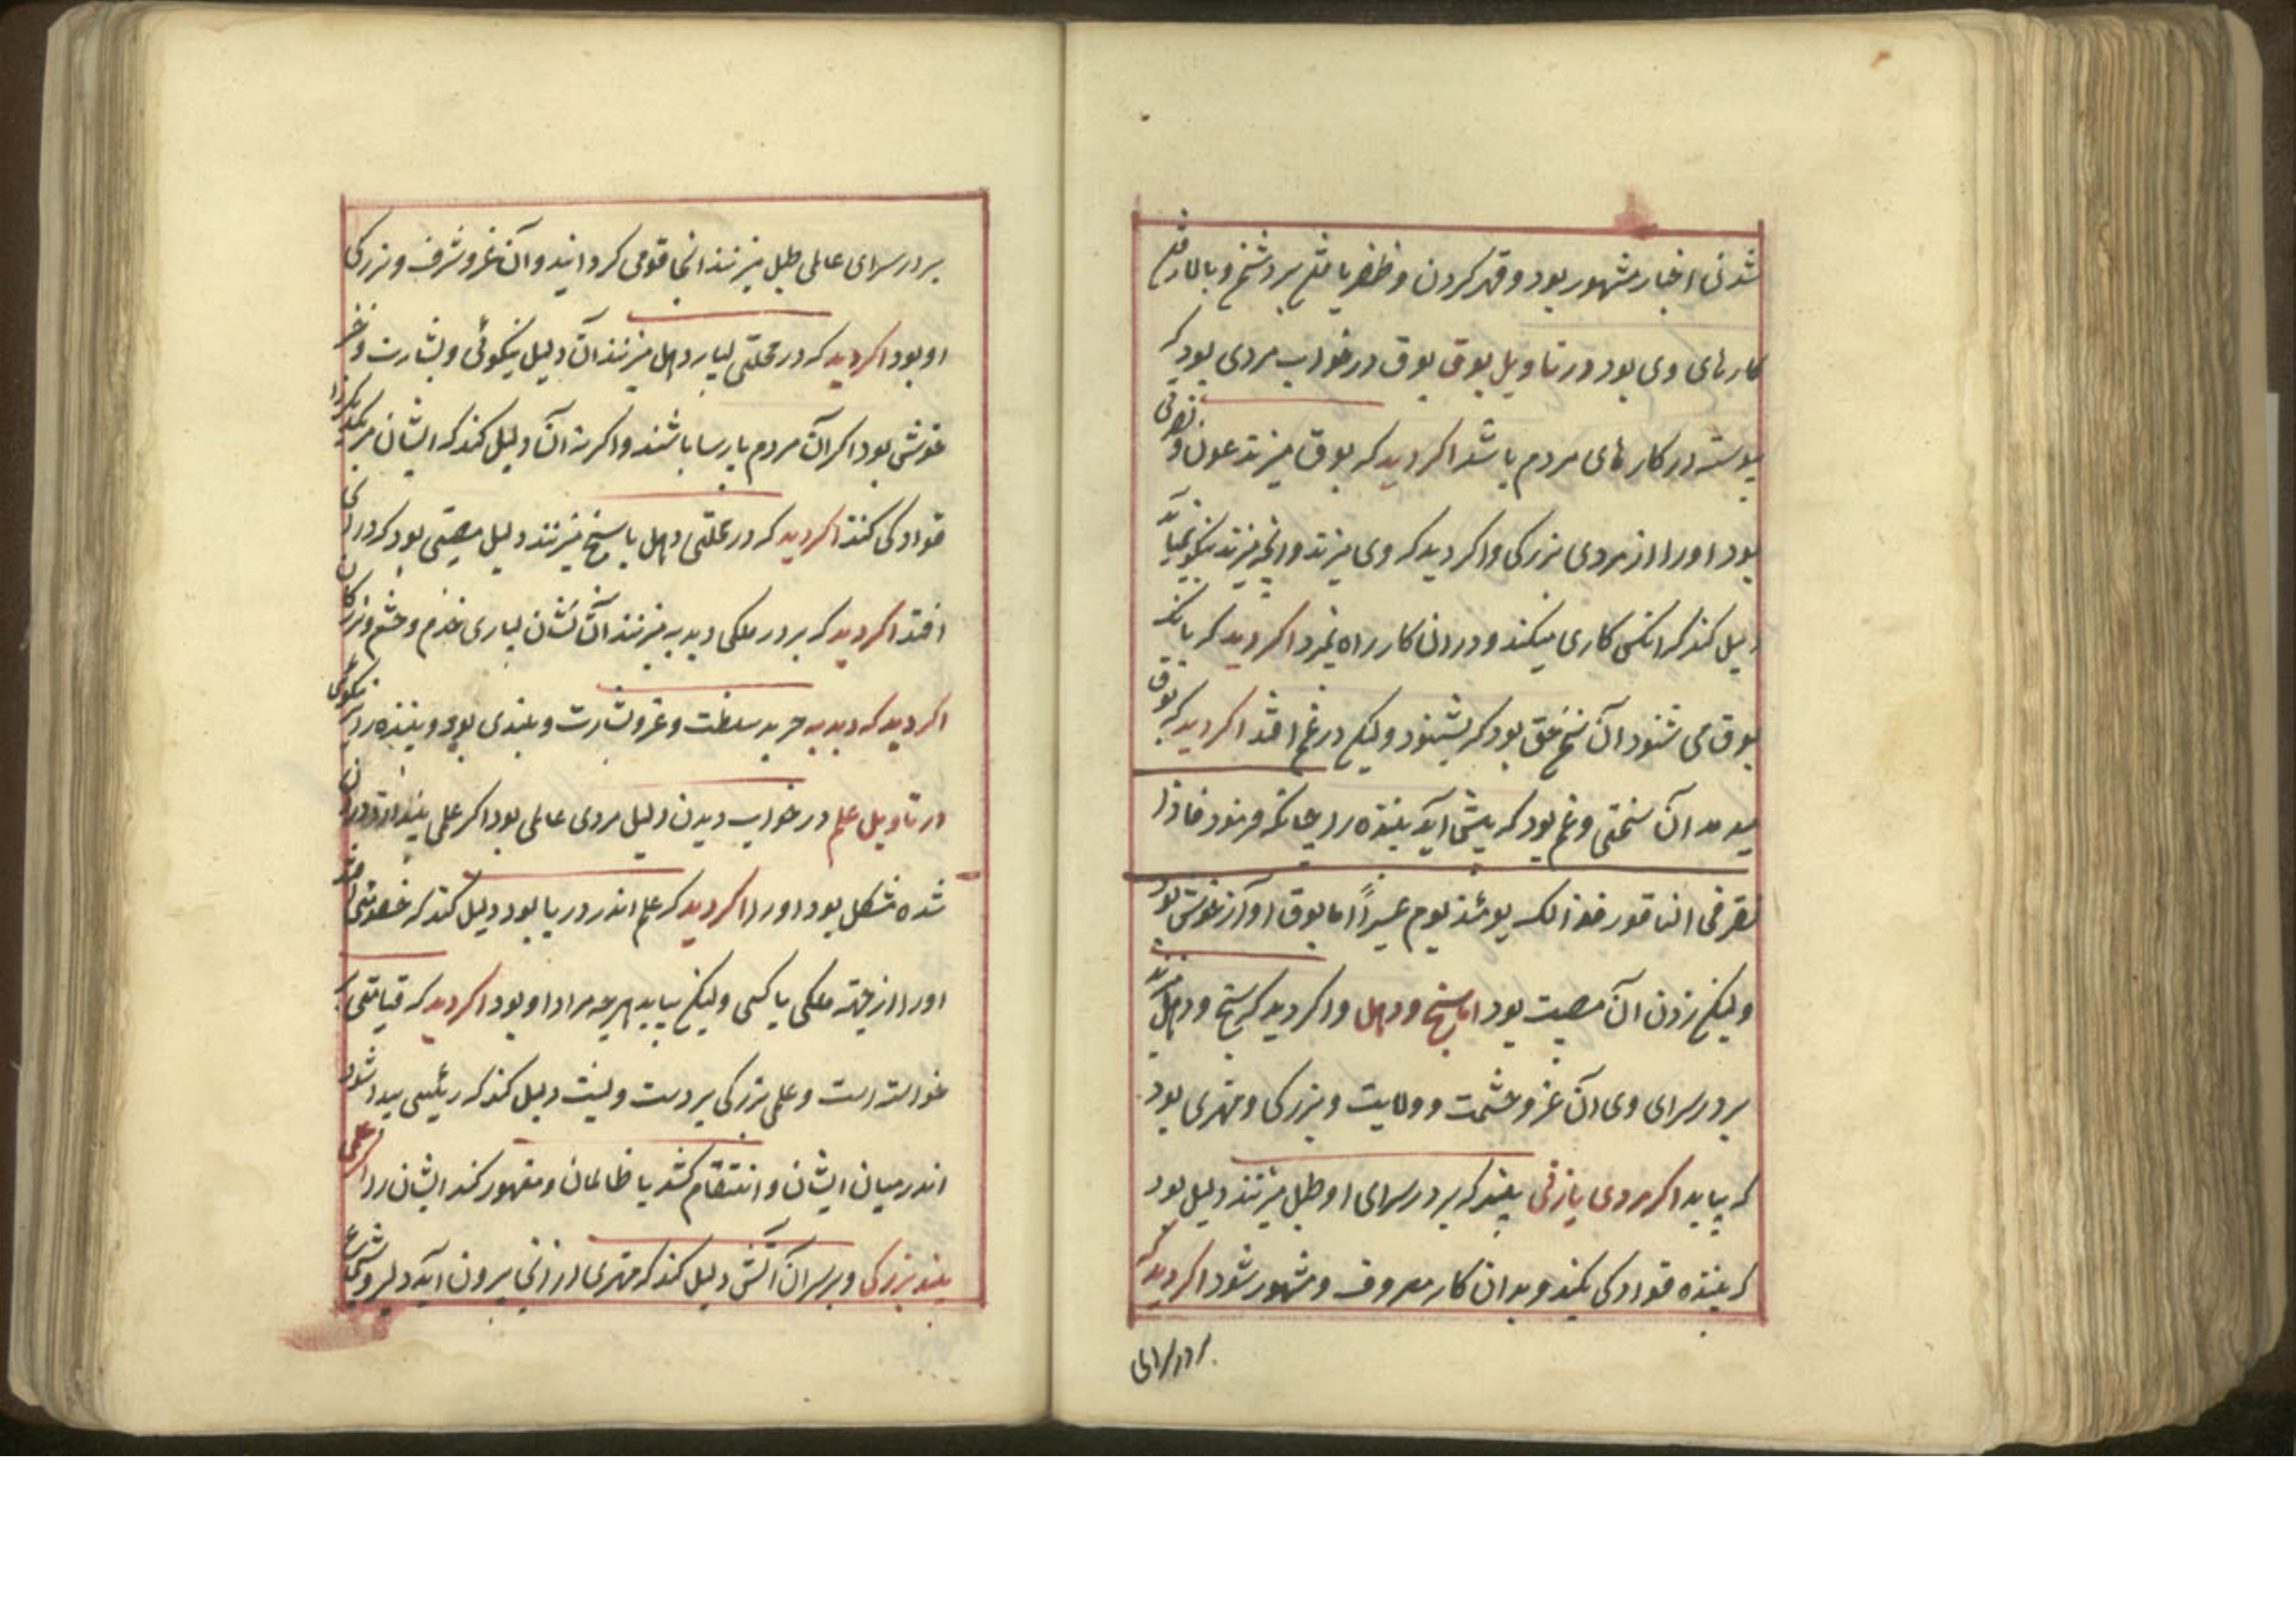 شدن اخبار مشهور بود و قهر کردن و ظفر یافتن بر دشمن و بالا رفتن
کارهای وی بود در تاویل بوق بوق در خواب مردی بود که
پیوسته در کارهای مردم باشد اکر دید که بوق میزند عون و نصرتی
بود او را از مردی بزرکی و اکر دید که وی میزند و انچه میزند نیکو نمیاید
دلیل کند که انکس کاری میکند و در ان کار راه نبرد اکر دید که بانک
بوق می شنود آن خلق بود که بشنود ولیکن در غم افتد اکر دید که بوق
میدمد آن سختی و غم بود که پیش آید بیننده را چنانکه فرمود فاذا
نقر فی الناقور فذالک یومئذ یوم عسیراً اما بوق او آواز خوش بود
ولیکن زدن آن مصیبت بود اما سنج و دهل و اکر دید که سنج و دهل میزنند
بر در سرای وی آن عز و حشمت و ولایت و بزرکی و مهتری بود
که بیابد اکر مردی یا زنی بیند که بر در سرای او طبل میزنند دلیل بود
که بیننده قوادکی بکند و بدان کار معروف و مشهور شود اکر دید که
بر در سرای
بر در سرای عاملی طبل میزنند انجا قومی کرد ایند و آن عز و شرف و بزرکی
او بود اکر دید که در محلتی بسیار دهل میزنند آن دلیل نیکوئی و بشارت و
خوشی بود اکر آن مردم پارسا باشند و اکر نه آن دلیل کند که ایشان مر یکدیکر را
قوادکی کنند اکر دید که در محلتی دهل یا سنج میزنند دلیل مصیبتی بود که در انجا
افتد اکر دید که بر در ملکی دبدبه میزنند آن نشان بسیاری خدم و حشم و بزرکان
اکر دید که دبدبه خرید سلطنت و عز و بشارت و بلندی بود و بیننده را نیکوئی
در تاویل علم در خواب دیدن دلیل مردی عالمی بود اکر علمی بیند
شده مشکل بود او را اکر دید که علم اندر دریا بود دلیل کند که خصومتی افتد
او را از جهة ملکی یا کسی ولیکن بیابد هرچه مراد او بود اکر دید که قیامتی
خواسته است و علمی بزرکی بر دست ویست دلیل کند که رئیسی پیدا شود
اندر میان ایشان و انتقام کشد یا ظالمان و مقهور کند ایشان را اکر علمی
بیند بزرکی و بر سر آن آتش دلیل کند که مهتری از انجا بیرون آید دلیر و شجاع